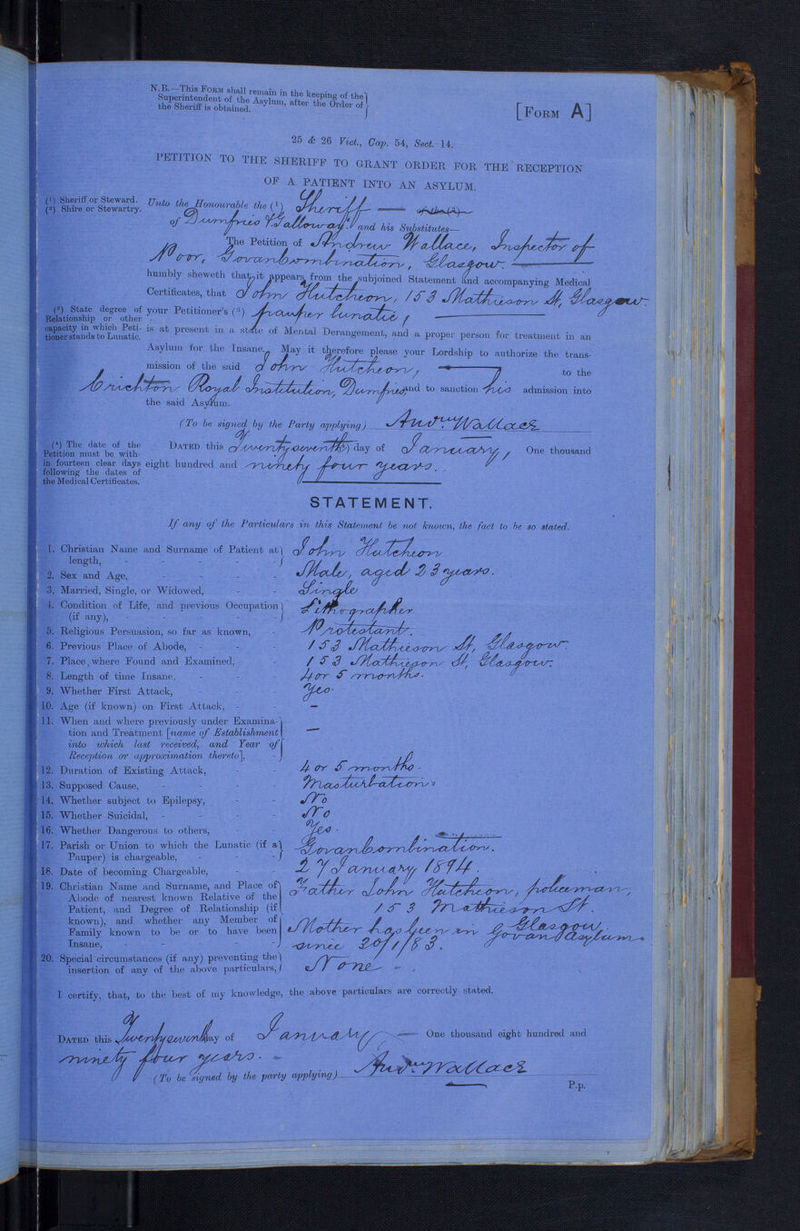 N.B.—This Form shall remain in the keeping of the
Superintendent of the Asylum, after the Order of
the Sheriff is obtained.
[Form A]
25 & 26 Vict., Cap. 54, Sect. 14.
PETITION TO THE SHERIFF TO GRANT ORDER FOR THE RECEPTION
OF A PATIENT INTO AN ASYLUM.
(¹) Sheriff or Steward.
(²) Shire or Stewartry.
Unto the Honourable the (¹) Sheriff — of the (²)
of Dumfries & Galloway and his Substitutes—
The Petition of Andrew Wallace, Inspector of
Poor, Govan Combination, Glasgow.
humbly sheweth that it appears from the subjoined Statement and accompanying Medical
Certificates, that John Hutcheon, 153 Mathieson St, Glasgow
(³) State degree of
Relationship or other
capacity in which Peti-
tioner stands to Lunatic.
your Petitioner's (³) pauper lunatic,
is at present in a state of Mental Derangement, and a proper person for treatment in an
Asylum for the Insane. May it therefore please your Lordship to authorize the trans-
mission of the said John Hutcheon, to the
Crichton Royal Institution, Dumfries and to sanction his admission into
the said Asylum.
(To be signed by the Party applying) Andw. Wallace
(⁴) The date of the
Petition must be with-
in fourteen clear days
following the dates of
the Medical Certificates.
Dated this Twenty seventh (⁴) day of January, One thousand
eight hundred and ninety four years.
STATEMENT.
If any of the Particulars in this Statement be not known, the fact to be so stated.
1. Christian Name and Surname of Patient at length, - John Hutcheon
2. Sex and Age, - Male, aged 23 years.
3. Married, Single, or Widowed, - Single
4. Condition of Life, and previous Occupation (if any), - Lithographer
5. Religious Persuasion, so far as known, - Protestant.
6. Previous Place of Abode, - 153 Mathieson St, Glasgow
7. Place where Found and Examined, 153 Mathieson St, Glasgow.
8. Length of time Insane, - 4 or 5 months.
9. Whether First Attack, - Yes.
10. Age (if known) on First Attack, - –
11. When and where previously under Examina-
tion and Treatment [name of Establishment
into which last received, and Year of
Reception or approximation thereto], - —
12. Duration of Existing Attack, - 4 or 5 months.
13. Supposed Cause, - Masturbation
14. Whether subject to Epilepsy, - No
15. Whether Suicidal, - No
16. Whether Dangerous to others, - Yes.
17. Parish or Union to which the Lunatic (if a
Pauper) is chargeable, - Govan Combination.
18. Date of becoming Chargeable, - 27 January 1894
19. Christian Name and Surname, and Place of
Abode of nearest known Relative of the
Patient, and Degree of Relationship (if
known), and whether any Member of
Family known to be or to have been
Insane, -
Father John Hutcheon, policeman,
153 Mathieson St.
Glasgow
Mother has been in Govan Asylum
since 20/1/83.
20. Special circumstances (if any) preventing the
insertion of any of the above particulars, None
I certify, that, to the best of my knowledge, the above particulars are correctly stated.
Dated this Twenty seventh day of January — One thousand eight hundred and
ninety four years.
(To be signed by the party applying) Andw. Wallace
P.p.